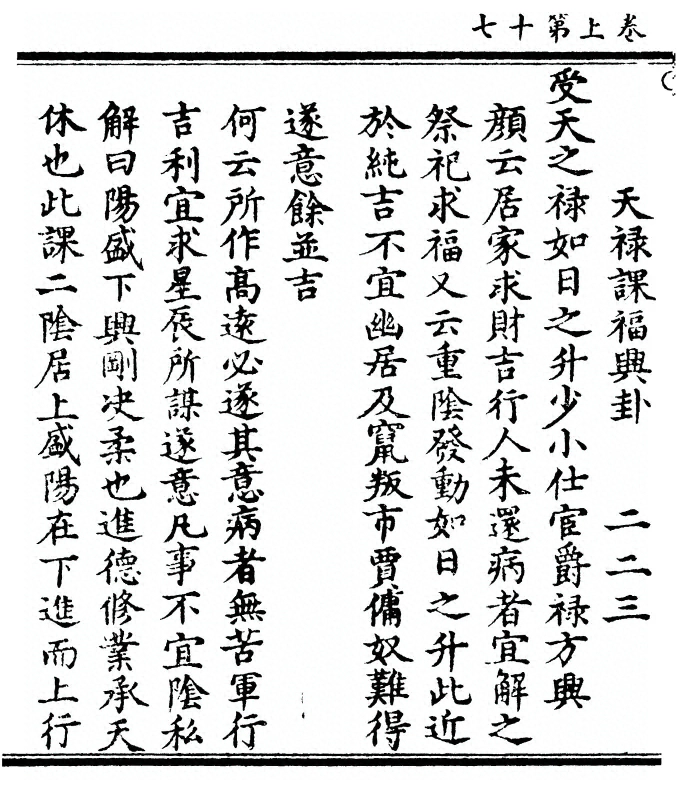 卷上第十七
天祿課福興卦　二二三
受天之祿如日之升少小仕宦爵祿方興
顏云居家求財吉行人未還病者宜解之
祭祀求福又云重陰發動如日之升此近
於純吉不宜幽居及竄叛市賈傭奴難得
遂意餘並吉
何云所作高遠必遂其意病者無苦軍行
吉利宜求星辰所謀遂意凡事不宜陰私
解曰陽盛下興剛决柔也進德修業承天
休也此課二陰居上盛陽在下進而上行